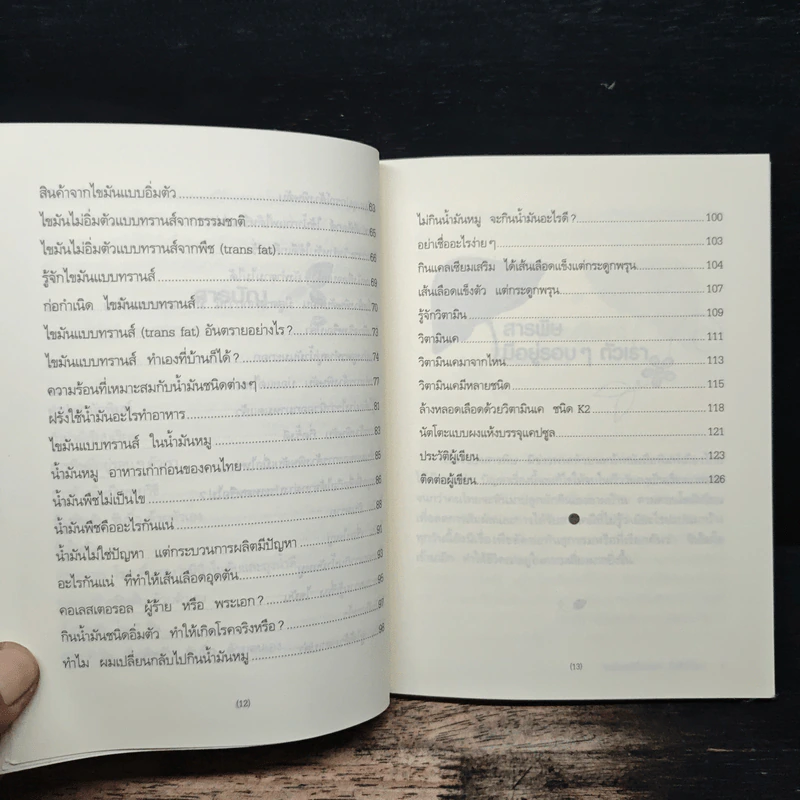 สินค้าจากไขมันแบบอิ่มตัว 63
ไขมันไม่อิ่มตัวแบบทรานส์จากธรรมชาติ 65
ไขมันไม่อิ่มตัวแบบทรานส์จากพืช (trans fat) 68
รู้จักไขมันแบบทรานส์ 69
ก่อกำเนิด ไขมันแบบทรานส์ 70
ไขมันแบบทรานส์ (trans fat) อันตรายอย่างไร? 73
ไขมันแบบทรานส์ ทำเองที่บ้านก็ได้? 74
ความร้อนที่เหมาะสมกับน้ำมันชนิดต่างๆ 77
ฝรั่งใช้น้ำมันอะไรทำอาหาร 81
ไขมันแบบทรานส์ ในน้ำมันหมู 83
น้ำมันหมู อาหารเก่าก่อนของคนไทย 85
น้ำมันพืชไม่เป็นไข 86
น้ำมันพืชคืออะไรกันแน่ 88
น้ำมันไม่ใช่ปัญหา แต่กระบวนการผลิตมีปัญหา 91
อะไรกันแน่ ที่ทำให้เส้นเลือดอุดตัน 93
คอเลสเตอรอล ผู้ร้าย หรือ พระเอก? 95
กินน้ำมันชนิดอิ่มตัว ทำให้เกิดโรคจริงหรือ? 97
ทำไม ผมเปลี่ยนกลับไปกินน้ำมันหมู 98
(12)
ไม่กินน้ำมันหมู จะกินน้ำมันอะไรดี? 100
อย่าเชื่ออะไรง่ายๆ 103
กินแคลเซียมเสริม ได้เส้นเลือดแข็งแต่กระดูกพรุน 104
เส้นเลือดแข็งตัว แต่กระดูกพรุน 107
รู้จักวิตามิน 109
วิตามินเค 111
วิตามินเคมาจากไหน 113
วิตามินเคมีหลายชนิด 115
ล้างหลอดเลือดด้วยวิตามินเค ชนิด K2 118
นัตโตะแบบผงแห้งบรรจุแคปซูล 121
ประวัติผู้เขียน 123
ติดต่อผู้เขียน 126
(13)